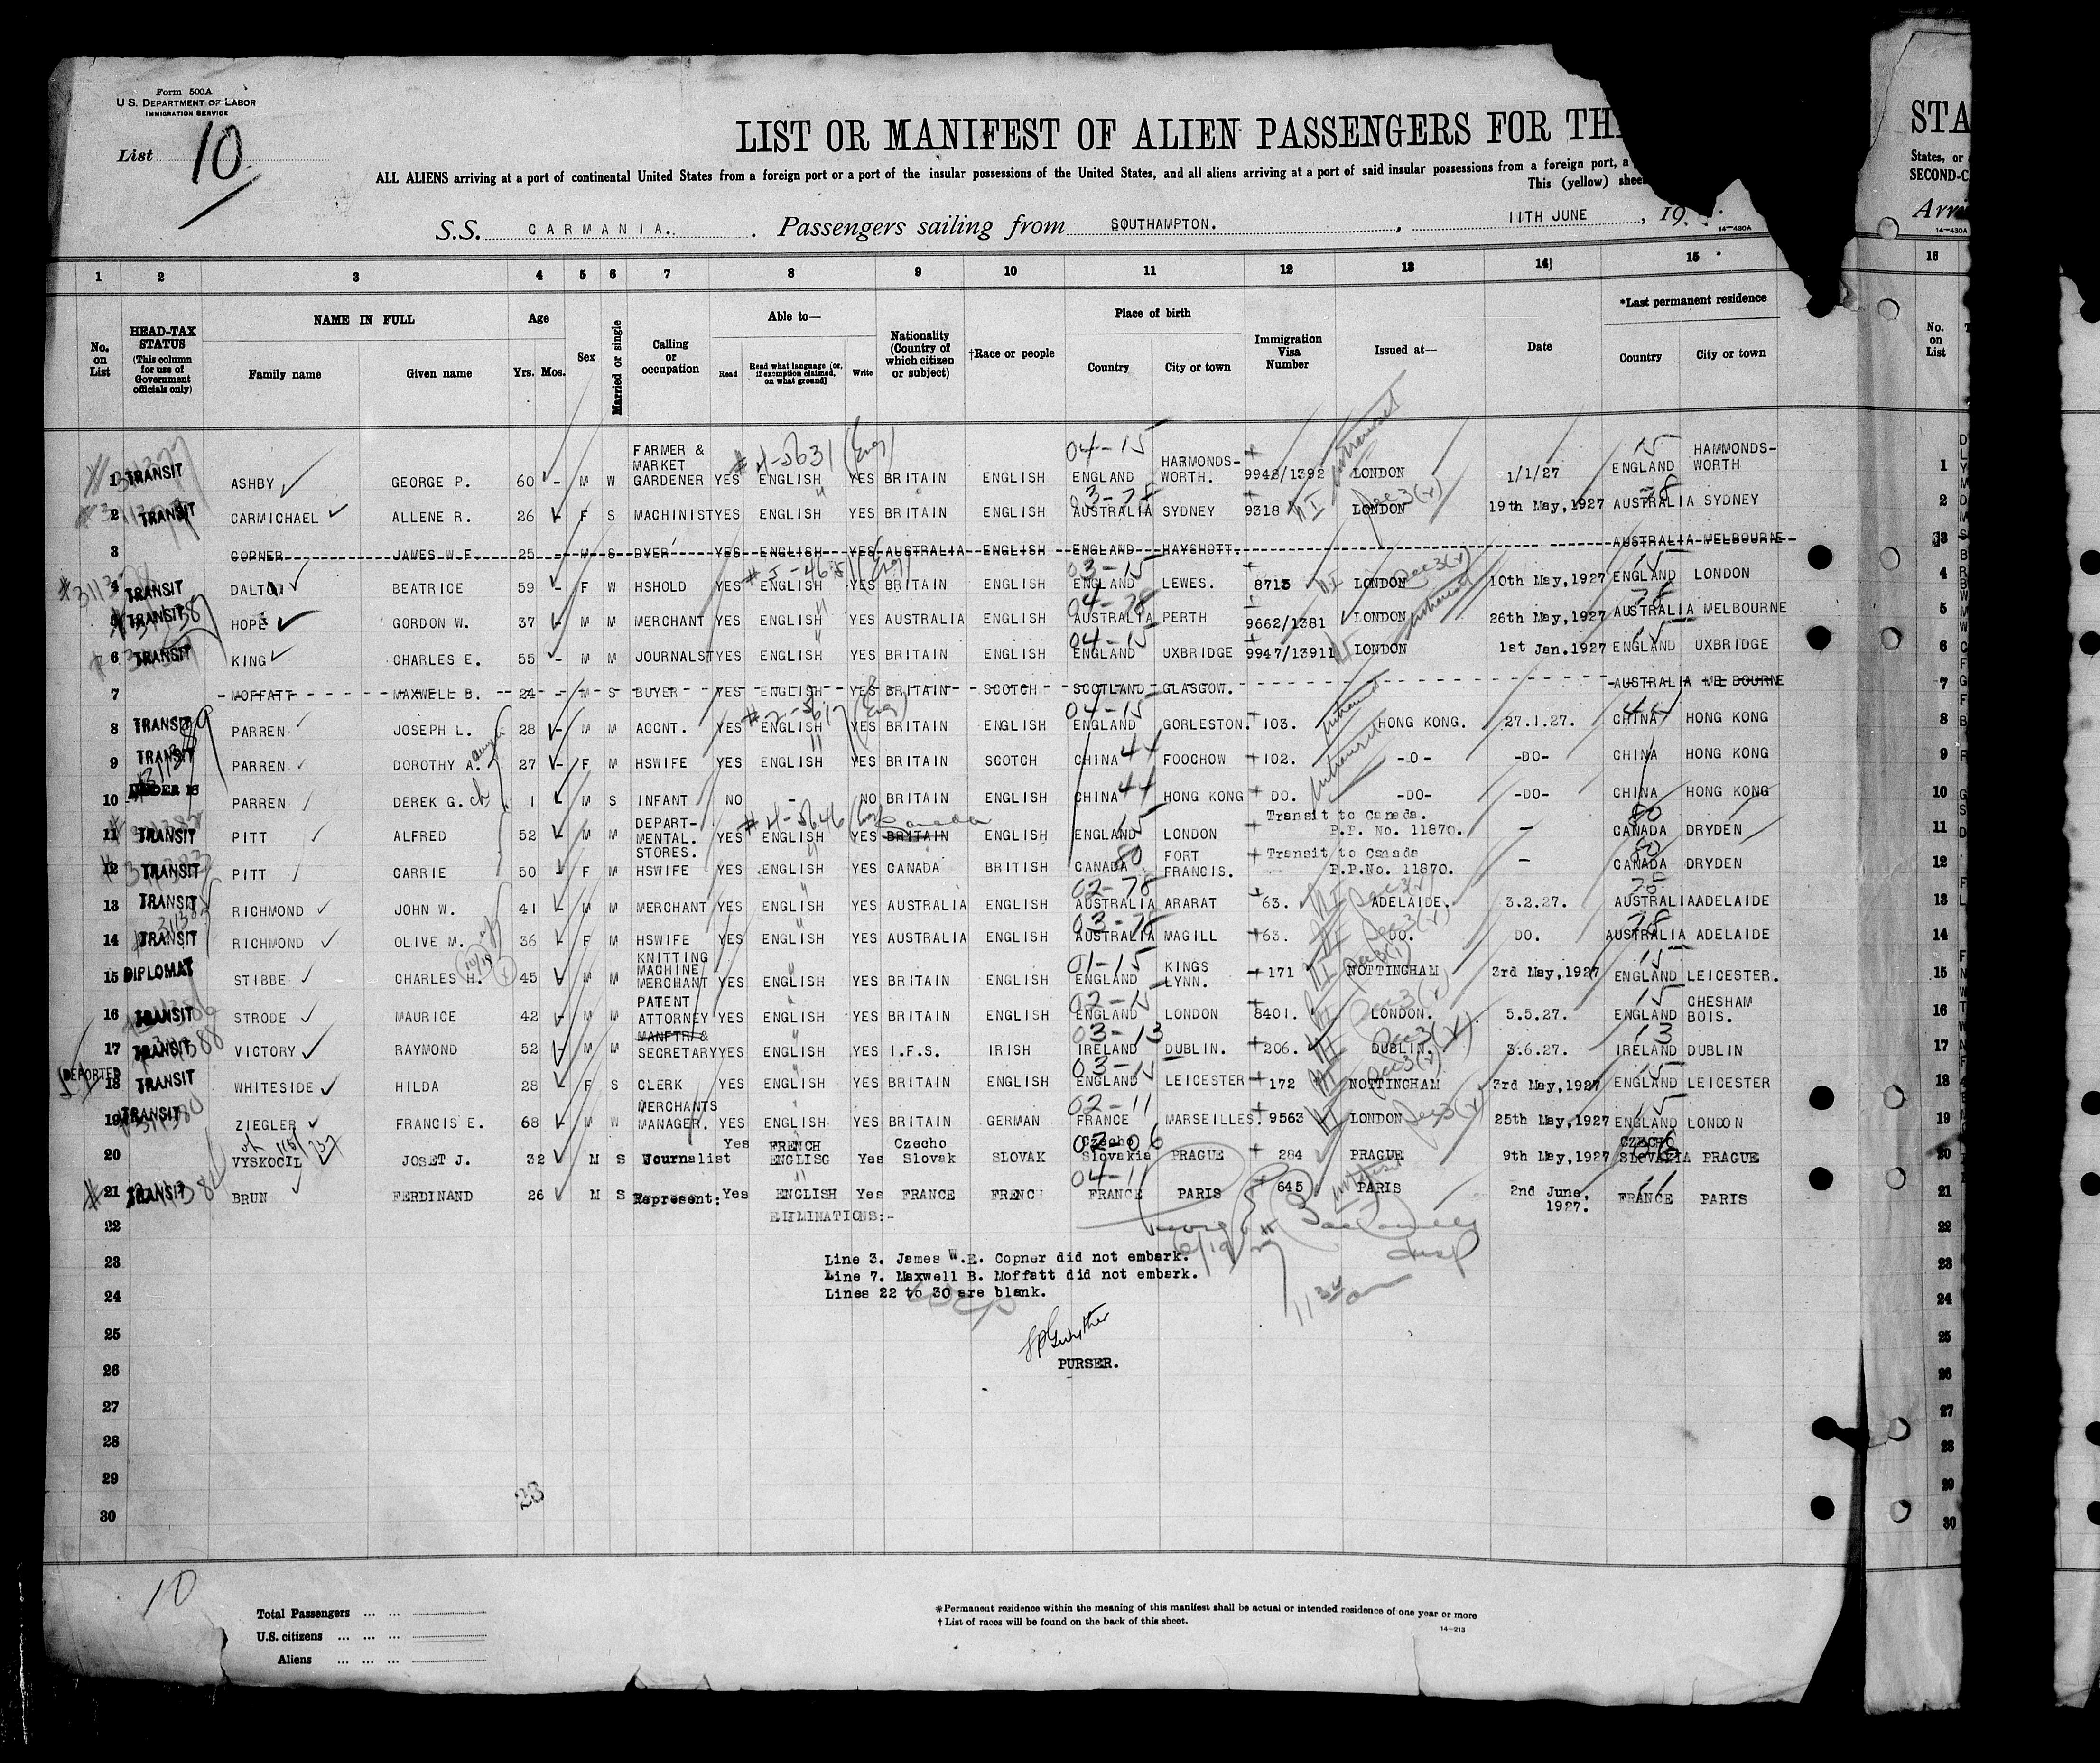 Form 500A
U.S. DEPARTMENT OF LABOR
IMMIGRATION SERVICE
List 10
LIST OR MANIFEST OF ALIEN PASSENGERS FOR TH
ALL ALIENS arriving at a port of continental United States from a foreign port or a port of the insular possessions of the United States, and all aliens arriving at a port of said insular possessions from a foreign port, a
This (yellow) sheet
S.S. CARMANIA. Passengers sailing from SOUTHAMPTON. , 11TH JUNE , 19
14—430A
1 2 3 4 5 6 7 8 9 10 11 12 13 14 15
No. on List
HEAD-TAX STATUS (This column for use of Government officials only)
NAME IN FULL
Family name Given name
Age
Yrs. Mos.
Sex
Married or single
Calling or occupation
Able to—
Read Read what language [or, if exemption claimed, on what ground] Write
Nationality (Country of which citizen or subject)
†Race or people
Place of birth
Country City or town
Immigration Visa Number
Issued at—
Date
*Last permanent residence
Country City or town
1 TRANSIT ASHBY GEORGE P. 60 - M W FARMER & MARKET GARDENER YES ENGLISH YES BRITAIN ENGLISH ENGLAND HARMONDS-WORTH. 9948/1392 LONDON 1/1/27 ENGLAND HAMMONDS-WORTH
2 TRANSIT CARMICHAEL ALLENE R. 26 - F S MACHINIST YES ENGLISH YES BRITAIN ENGLISH AUSTRALIA SYDNEY 9318 LONDON 19th May,1927 AUSTRALIA SYDNEY
3 COPNER JAMES W.E. 25 M S DYER YES ENGLISH YES AUSTRALIA ENGLISH ENGLAND HAYSHOTT. AUSTRALIA MELBOURNE
4 TRANSIT DALTON BEATRICE 59 - F W HSHOLD YES ENGLISH YES BRITAIN ENGLISH ENGLAND LEWES. 8713 LONDON 10th May,1927 ENGLAND LONDON
5 TRANSIT HOPE GORDON W. 37 - M M MERCHANT YES ENGLISH YES AUSTRALIA ENGLISH AUSTRALIA PERTH 9662/1381 LONDON 26th May,1927 AUSTRALIA MELBOURNE
6 TRANSIT KING CHARLES E. 55 - M M JOURNALST YES ENGLISH YES BRITAIN ENGLISH ENGLAND UXBRIDGE 9947/13911 LONDON 1st Jan.1927 ENGLAND UXBRIDGE
7 MOFFATT MAXWELL B. 24 - M S BUYER YES ENGLISH YES BRITAIN SCOTCH SCOTLAND GLASGOW. AUSTRALIA ME BOURNE
8 TRANSIT PARREN JOSEPH L. 28 - M M ACCNT. YES ENGLISH YES BRITAIN ENGLISH ENGLAND GORLESTON. 103. HONG KONG. 27.1.27. CHINA HONG KONG
9 TRANSIT PARREN DOROTHY A. 27 - F M HSWIFE YES ENGLISH YES BRITAIN SCOTCH CHINA FOOCHOW 102. -O- -DO- CHINA HONG KONG
10 UNDER 16 PARREN DEREK G. 1 - M S INFANT NO - NO BRITAIN ENGLISH CHINA HONG KONG DO. -DO- -DO- CHINA HONG KONG
11 TRANSIT PITT ALFRED 52 - M M DEPART-MENTAL. STORES. YES ENGLISH YES BRITAIN Canada ENGLISH ENGLAND LONDON Transit to Canada. P.P. No. 11870. - CANADA DRYDEN
12 TRANSIT PITT CARRIE 50 - F M HSWIFE YES ENGLISH YES CANADA BRITISH CANADA FORT FRANCIS. Transit to Canada P.P.No. 11870. - CANADA DRYDEN
13 TRANSIT RICHMOND JOHN W. 41 - M M MERCHANT YES ENGLISH YES AUSTRALIA ENGLISH AUSTRALIA ARARAT 63. ADELAIDE. 3.2.27. AUSTRALIA ADELAIDE
14 TRANSIT RICHMOND OLIVE M. 36 - F M HSWIFE YES ENGLISH YES AUSTRALIA ENGLISH AUSTRALIA MAGILL 63. DO. DO. AUSTRALIA ADELAIDE
15 DIPLOMAT STIBBE CHARLES H. 45 - M M KNITTING MACHINE MERCHANT YES ENGLISH YES BRITAIN ENGLISH ENGLAND KINGS LYNN. 171 NOTTINGHAM 3rd May,1927 ENGLAND LEICESTER.
16 TRANSIT STRODE MAURICE 42 - M M PATENT ATTORNEY YES ENGLISH YES BRITAIN ENGLISH ENGLAND LONDON 8401. LONDON. 5.5.27. ENGLAND CHESHAM BOIS.
17 TRANSIT VICTORY RAYMOND 52 - M M MANFTR. & SECRETARY YES ENGLISH YES I.F.S. IRISH IRELAND DUBLIN. 206. DUBLIN. 3.6.27. IRELAND DUBLIN
DEPORTED
18 TRANSIT WHITESIDE HILDA 28 - F S CLERK YES ENGLISH YES BRITAIN ENGLISH ENGLAND LEICESTER 172 NOTTINGHAM 3rd May,1927 ENGLAND LEICESTER
19 TRANSIT ZIEGLER FRANCIS E. 68 - M W MERCHANTS MANAGER. YES ENGLISH YES BRITAIN GERMAN FRANCE MARSEILLES. 9563 LONDON 25th May,1927 ENGLAND LONDON
20 VYSKOCIL JOSET J. 32 M S Journalist Yes FRENCH ENGLISG Yes Czecho Slovak SLOVAK Czecho Slovakia PRAGUE 284 PRAGUE 9th May,1927 CZECHO SLOVAKIA PRAGUE
21 TRANSIT BRUN FERDINAND 26 M S Represent: Yes ENGLISH Yes FRANCE FRENCH FRANCE PARIS 645 PARIS 2nd June, 1927. FRANCE PARIS
22
23
Line 3. James W.E. Copner did not embark.
Line 7. Maxwell B. Moffatt did not embark.
24
Lines 22 to 30 are blank.
25
26
PURSER.
27
28
29
23
30
10
Total Passengers ... ...
U.S. citizens ... ... ...
Aliens ... ... ...
*Permanent residence within the meaning of this manifest shall be actual or intended residence of one year or more
† List of races will be found on the back of this sheet.
14—213
STA
States, or
SECOND-C
Arri
14—430A
16
No. on List
1
2
3
4
5
6
7
8
9
10
11
12
13
14
15
16
17
18
19
20
21
22
23
24
25
26
27
28
29
30